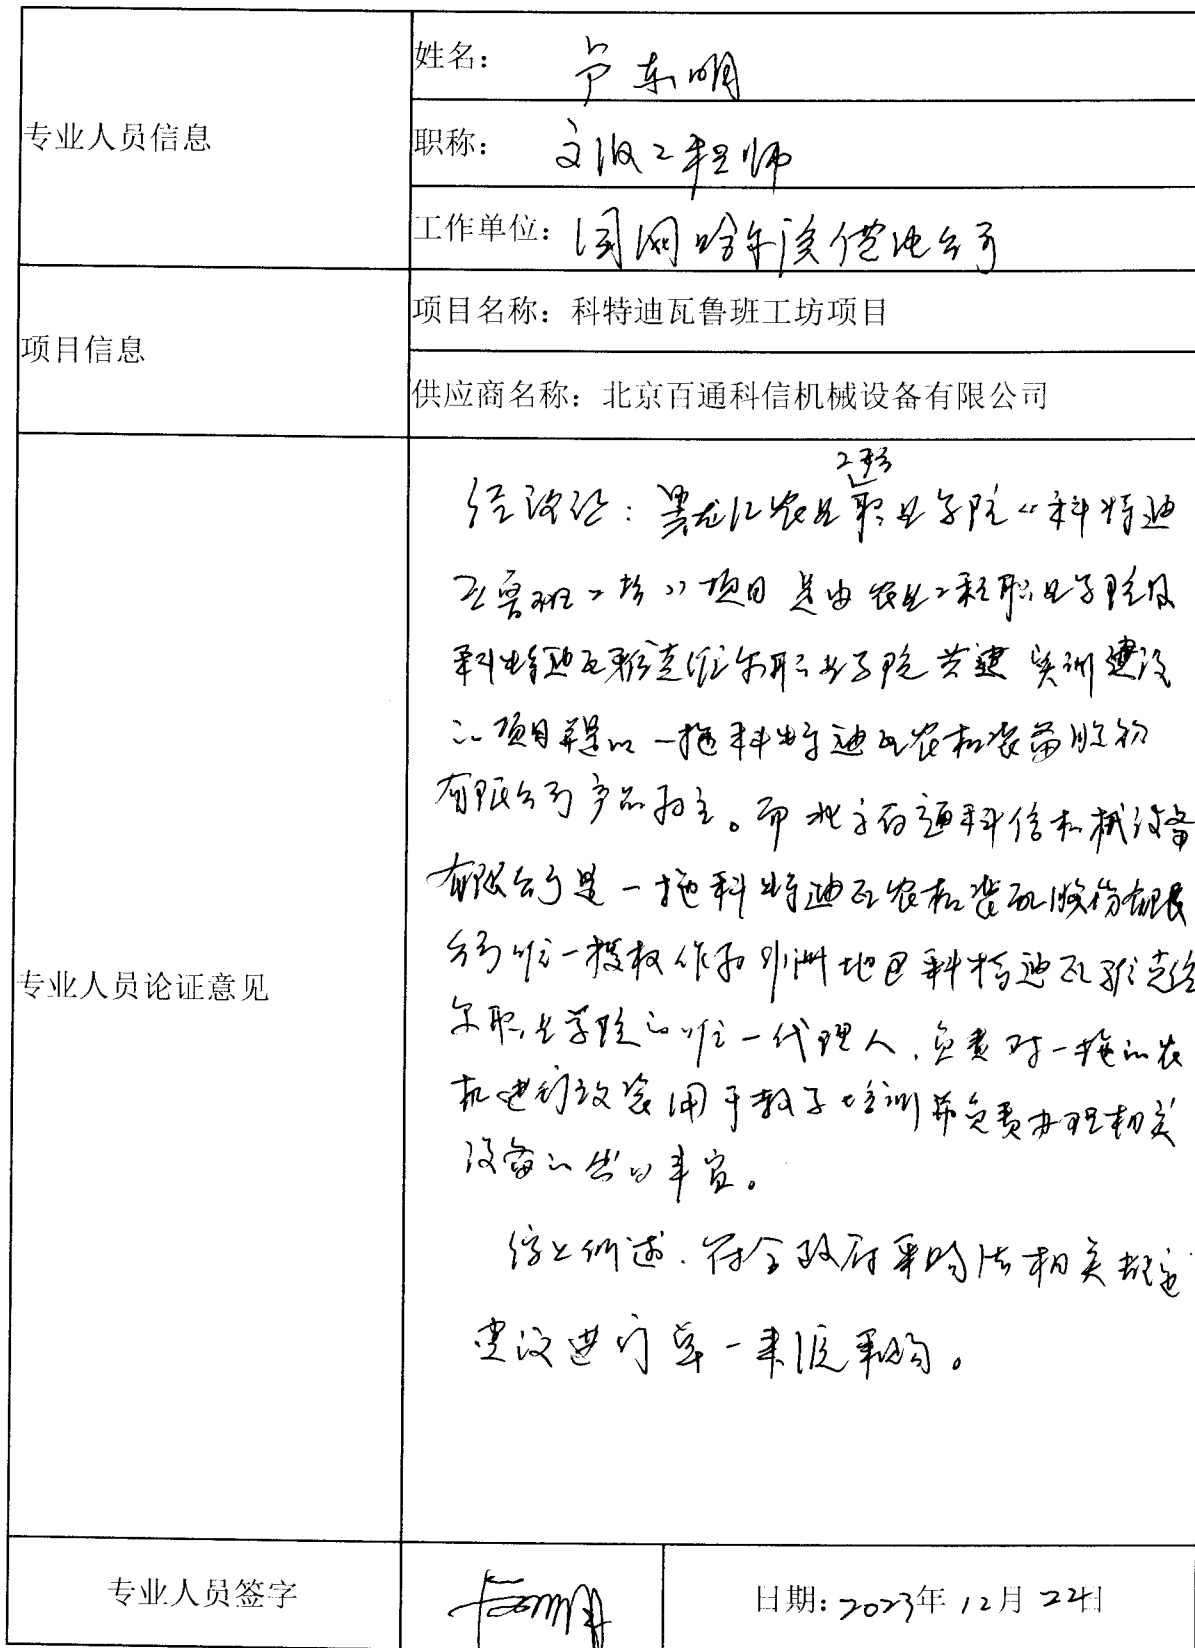 专业人员信息
姓名：卢东明
职称：高级工程师
工作单位：国网哈尔滨供电公司
项目信息
项目名称：科特迪瓦鲁班工坊项目
供应商名称：北京百通科信机械设备有限公司
专业人员论证意见
工程
经论证：黑龙江农业职业学院“科特迪
瓦鲁班工坊”项目是由农业工程职业学院及
科特迪瓦雅克维尔职业学院共建实训建设
的项目并是以一拖科特迪瓦农机装备股份
有限公司产品为主。而北京百通科信机械设备
有限公司是一拖科特迪瓦农机装配股份有限
公司唯一授权作为非洲地区科特迪瓦雅克维
尔职业学院的唯一代理人，负责对一拖的农
机进行改装用于教学培训并负责办理相关
设备的出口事宜。
综上所述，符合政府采购法相关规定
建议进行单一来源采购。
专业人员签字
卢东明
日期：2023年12月22日